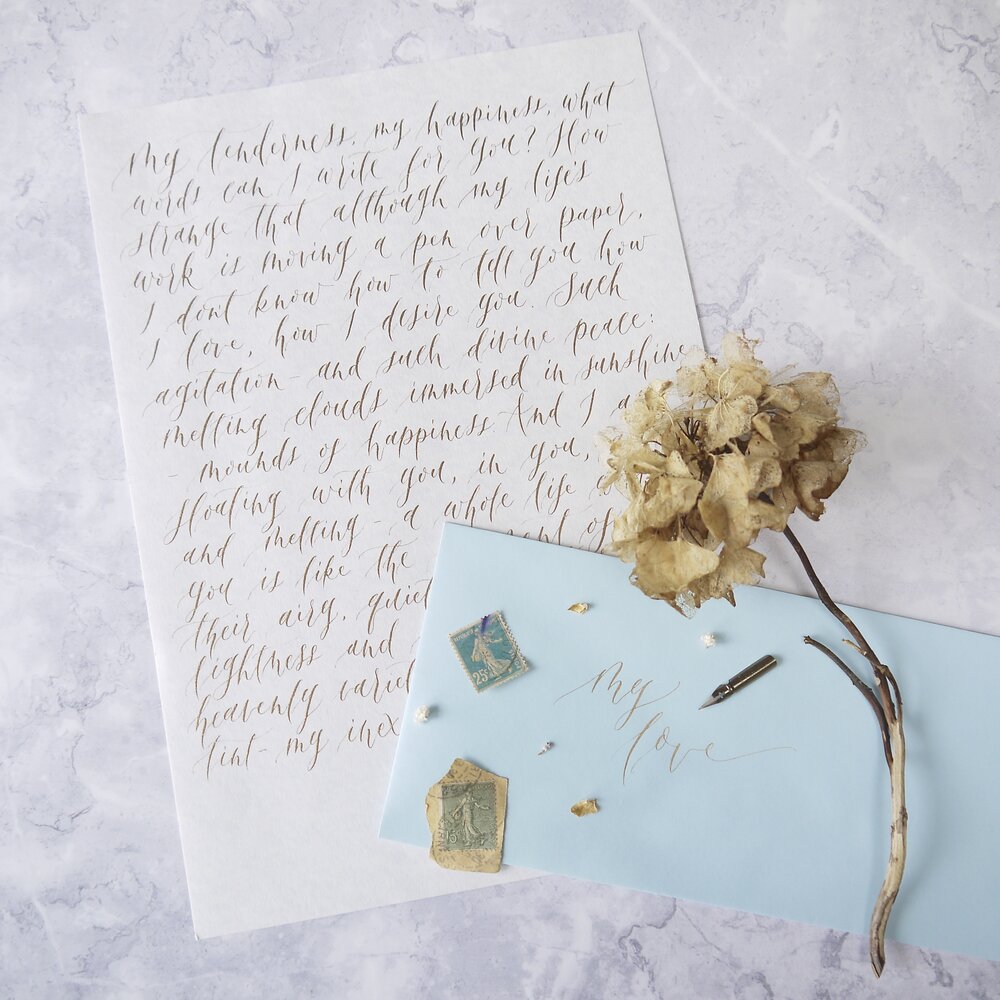 My tenderness, my happiness, what
words can I write for you? How
strange that although my life's
work is moving a pen over paper,
I don't know how to tell you how
I love, how I desire you. Such
agitation - and such divine peace:
melting clouds immersed in sunshine
- mounds of happiness. And I a
floating with you, in you,
and melting - a whole life
you is like the
their airy, quiet
lightness and
heavenly
tint - my
25
15
My
love